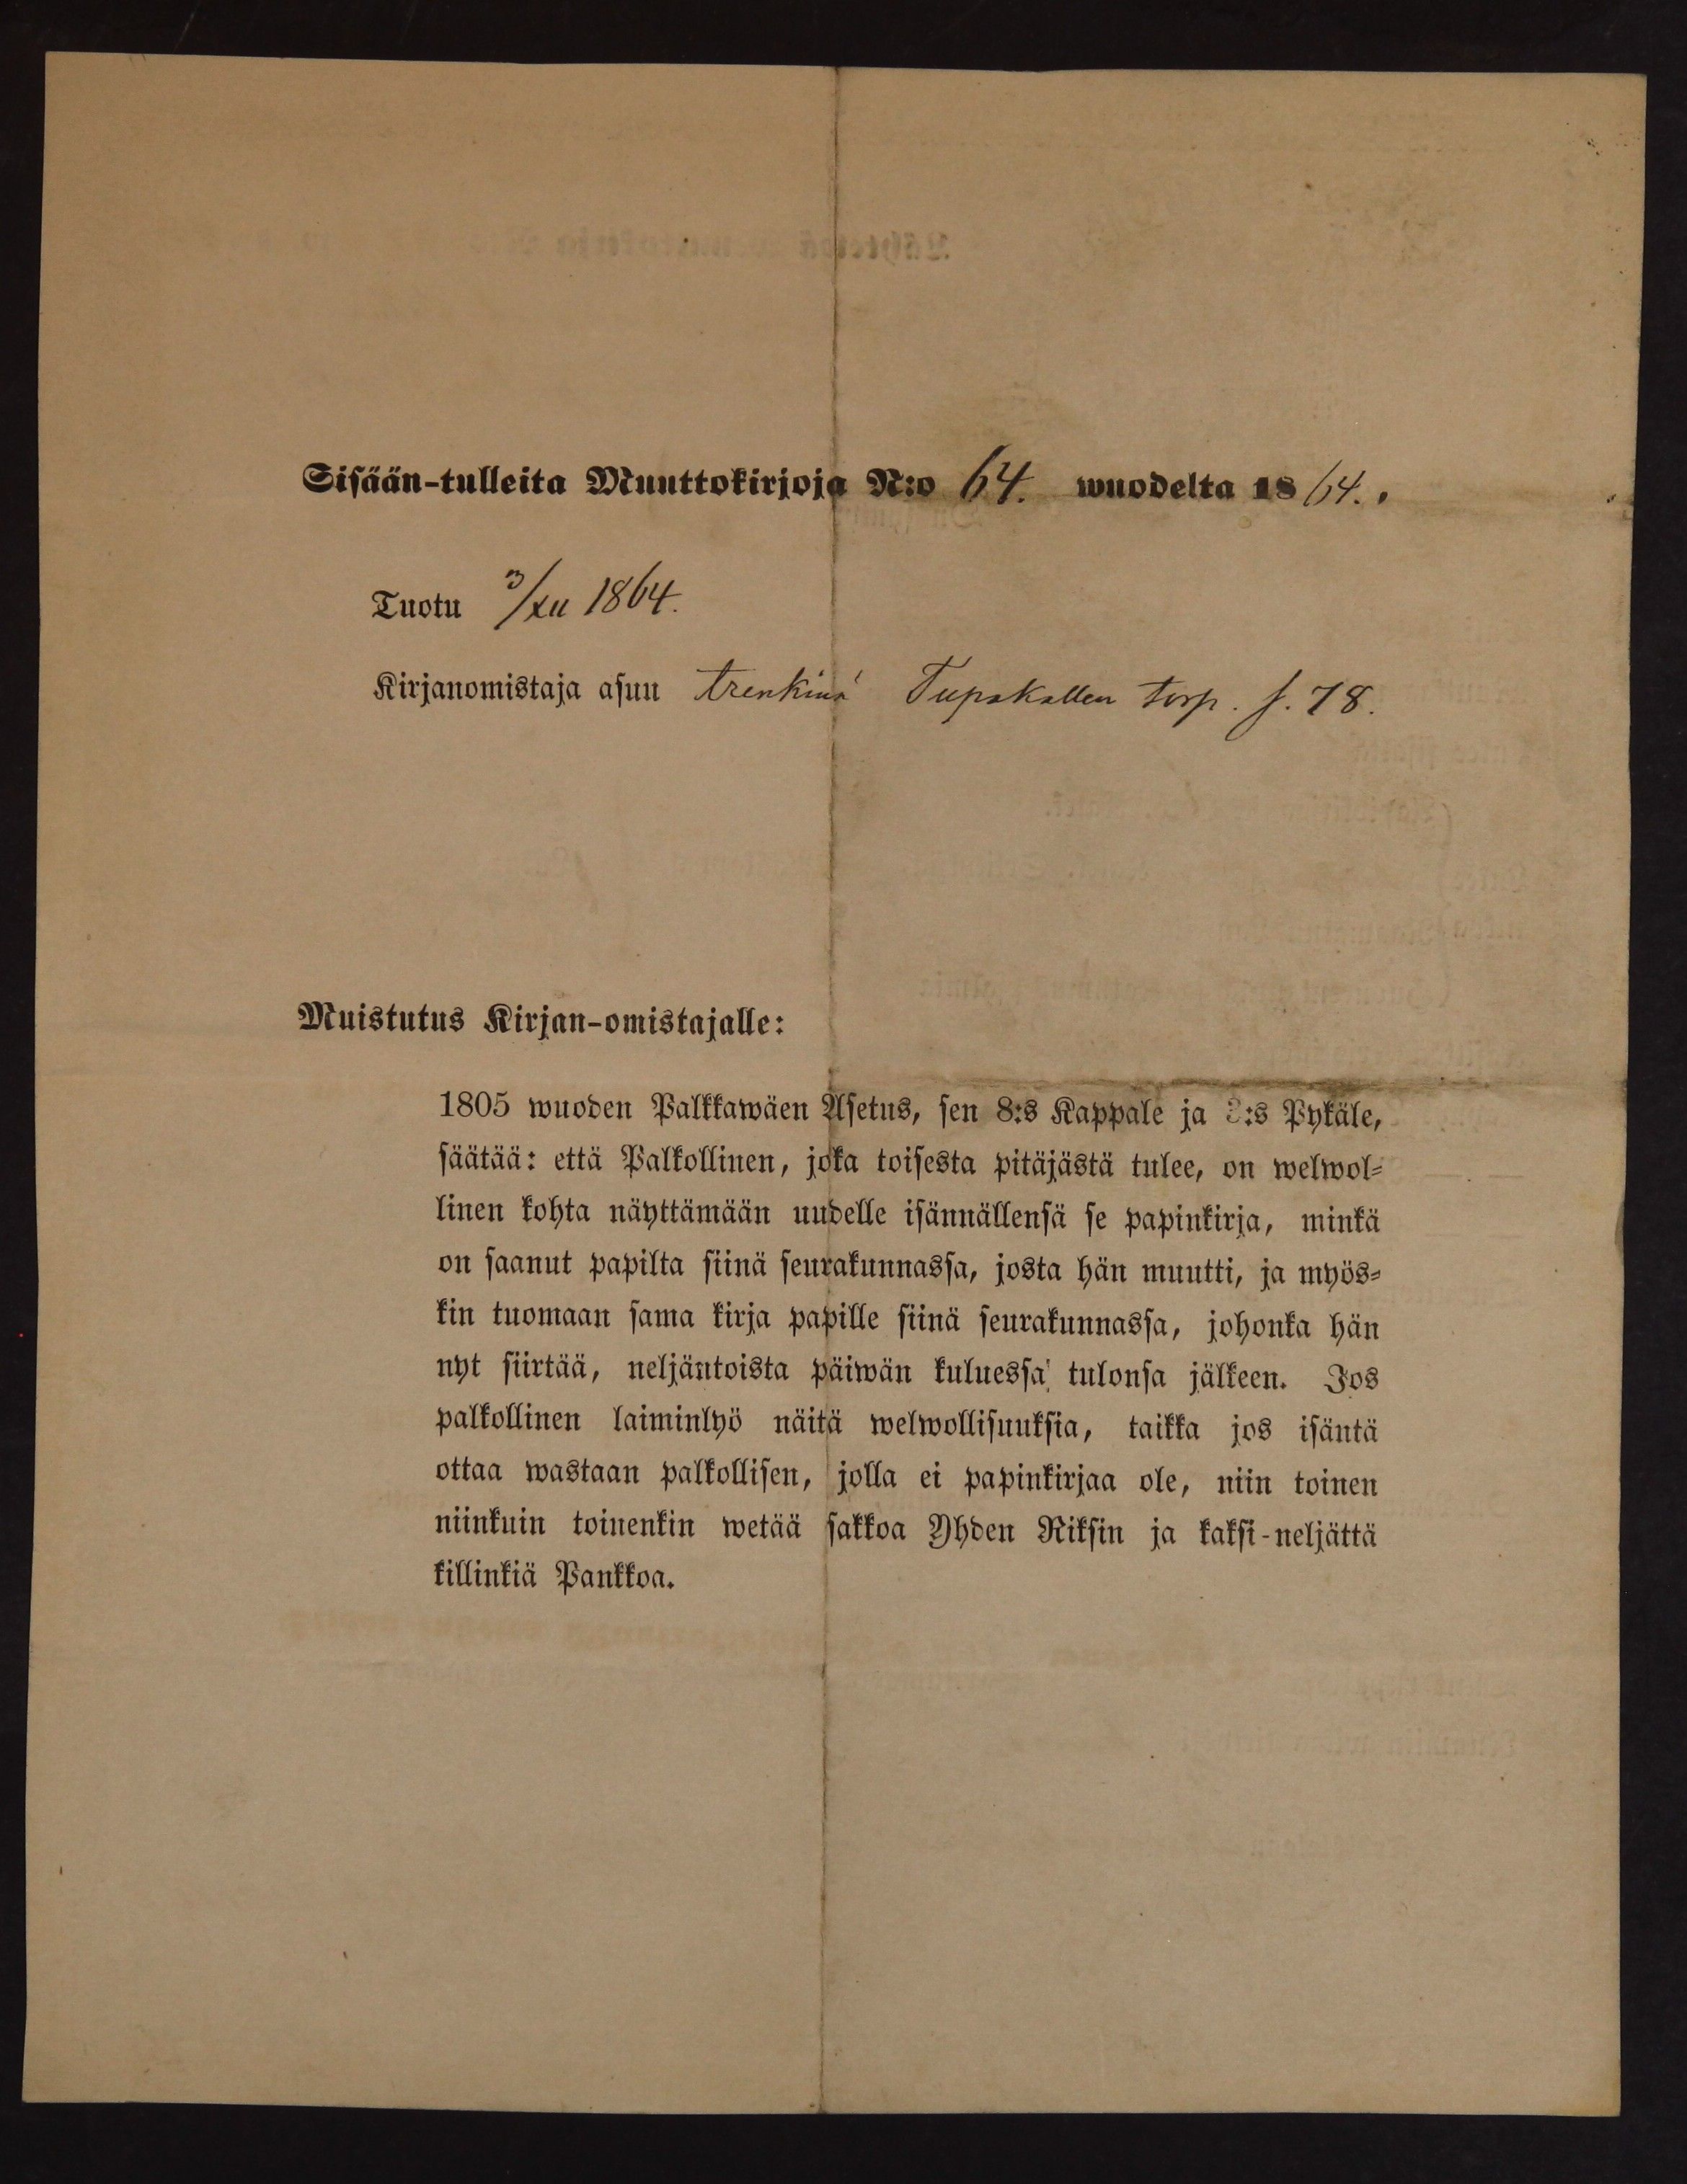 Sisään-tulleita Muuttokirjoja N:o 64. wuodelta 1864.
Tuotu 3/XII 1864.
Kirjanomistaja asuu trenkinä Tupakallen torp. s. 78.
Muistutus Kirjan-omistajalle:
1805 wuoden Palkkawäen Asetus, sen 8:s Kappale ja :s Pykäle,
säätää: että Palkollinen, joka toisesta pitäjästä tulee, on welwol-
linen kohta näyttämään uudelle isännällensä se papinkirja, minkä
on saanut papilta siinä seurakunnassa, josta hän muutti, ja myös-
kin tuomaan sama kirja papille siinä seurakunnassa, johonka hän
nyt siirtää, neljäntoista päiwän kuluessa tulonsa jälkeen. Jos
palkollinen laiminlyö näitä welwollisuuksia, taikka jos isäntä
ottaa wastaan palkollisen, jolla ei papinkirjaa ole, niin toinen
niinkuin toinenkin wetää sakkoa Yhden Riksin ja kaksi-neljättä
killinkiä Pankkoa.